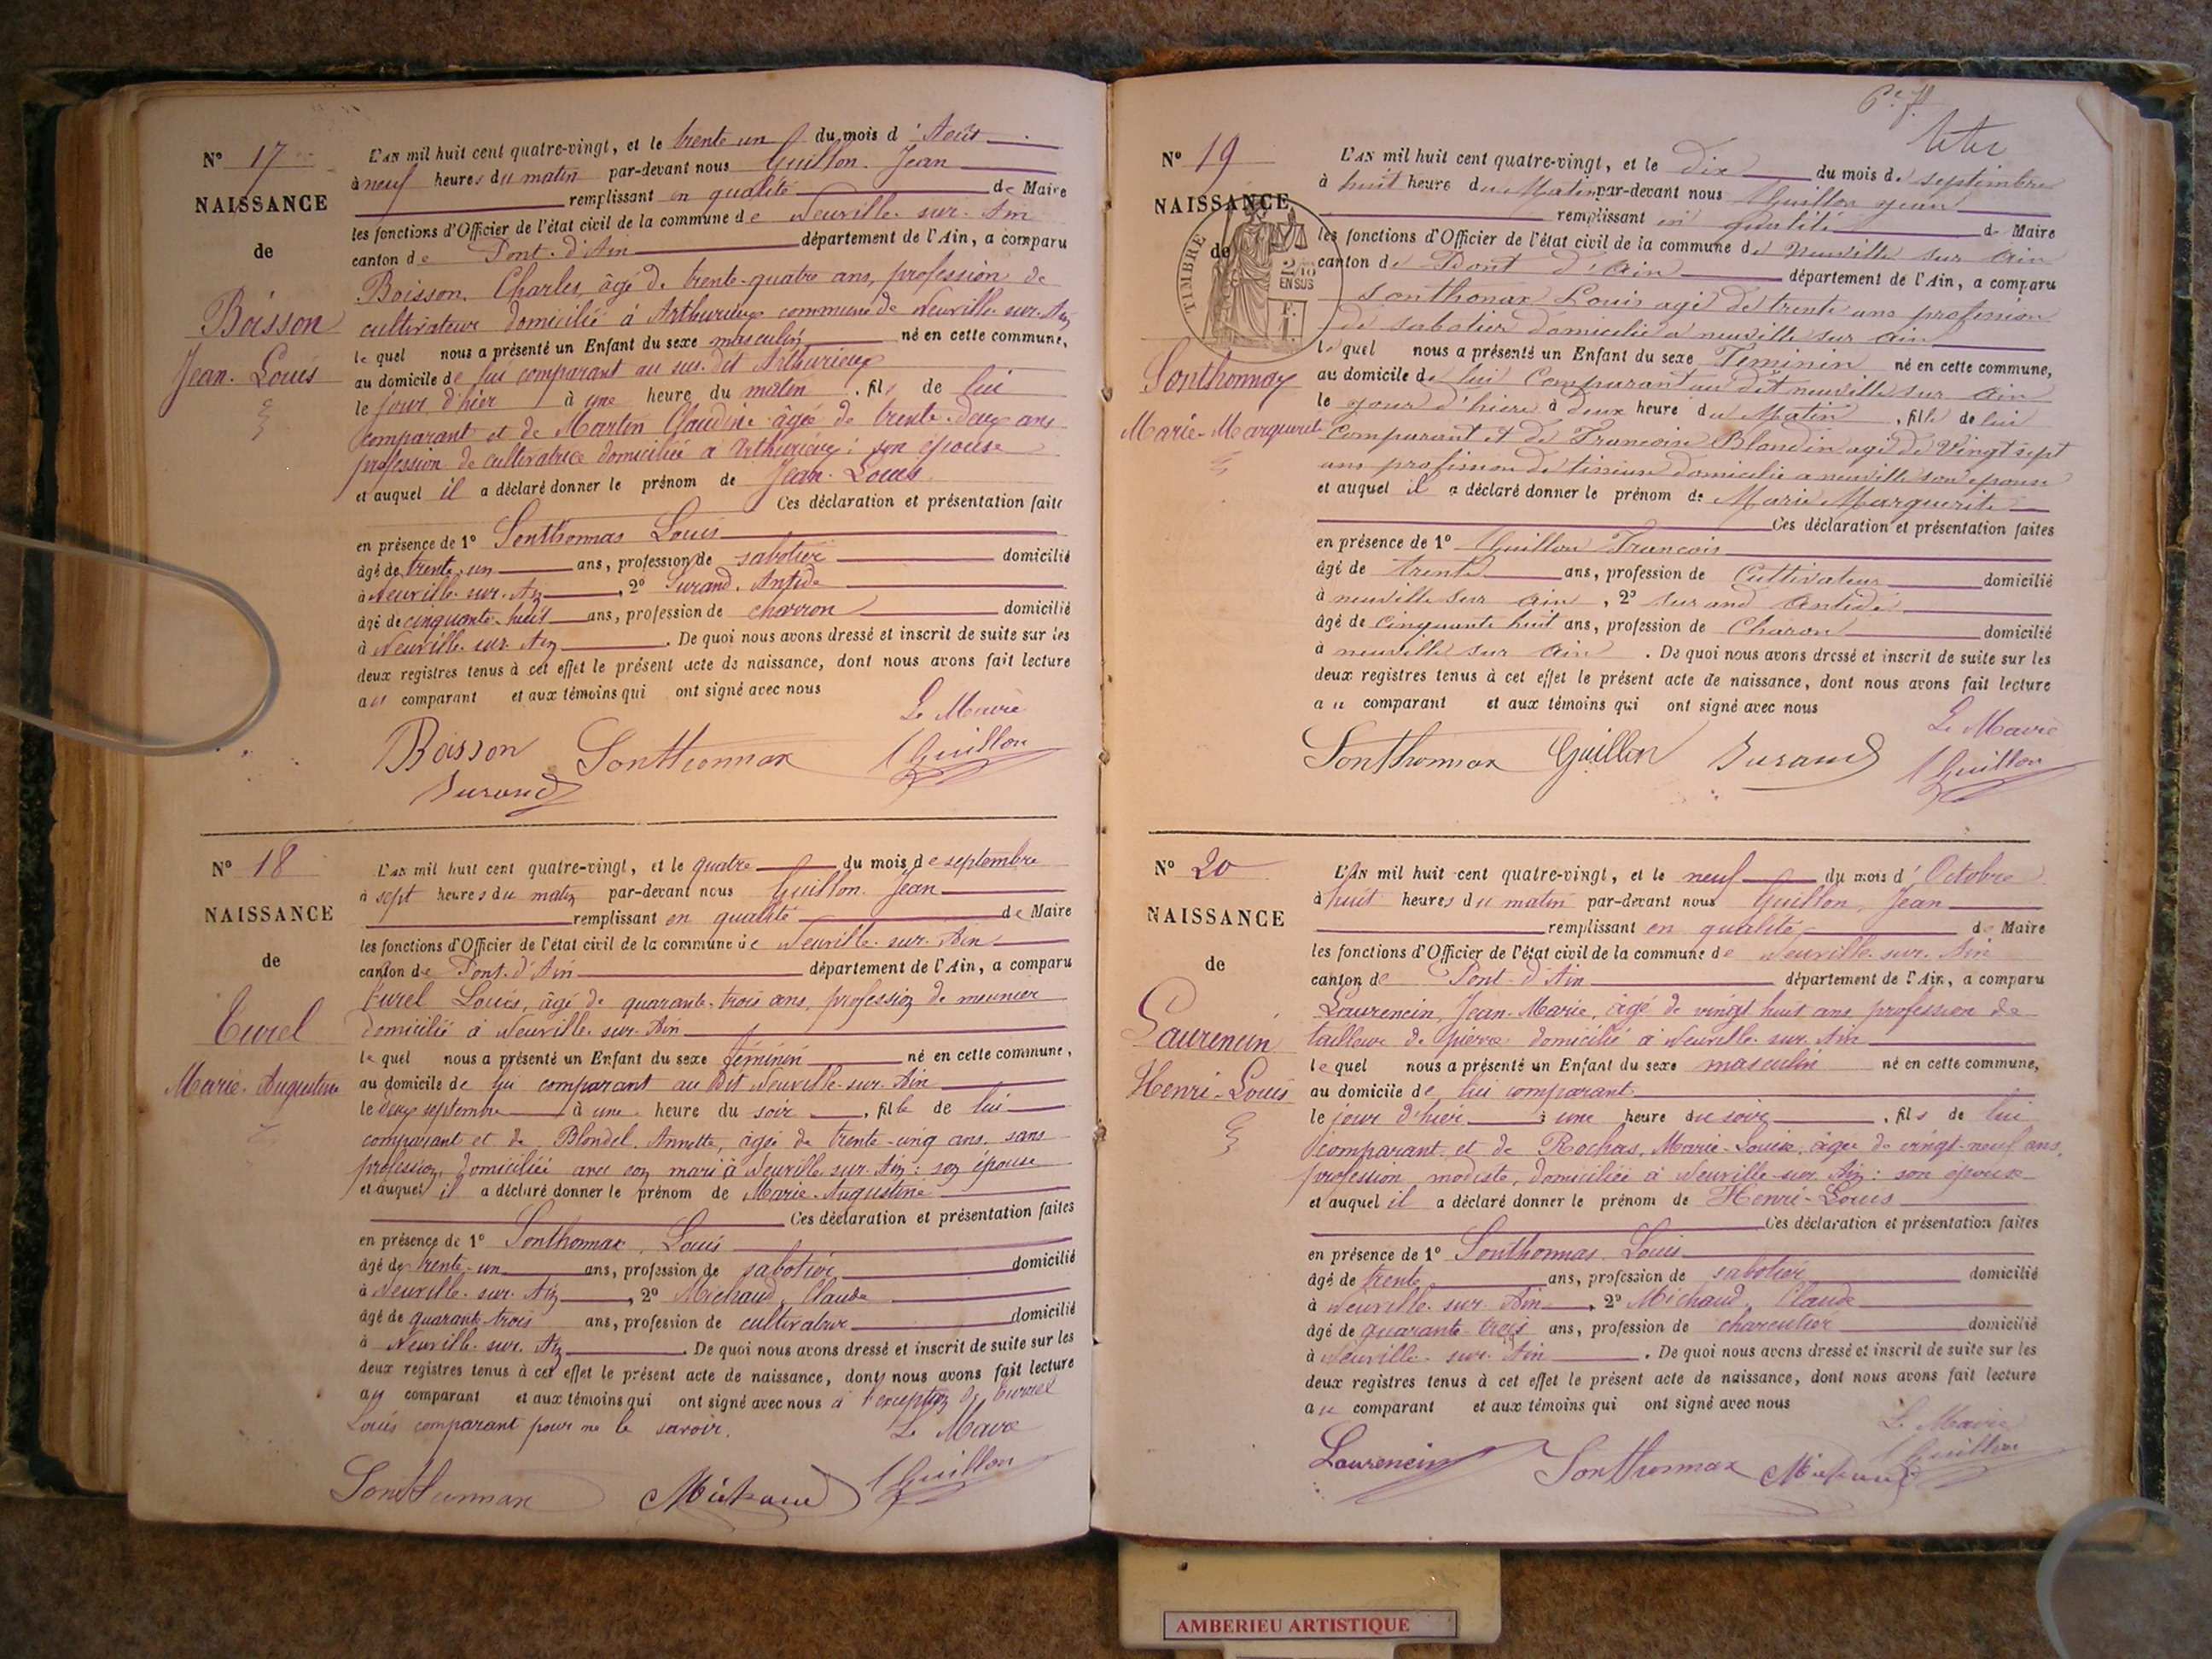 N° 17
NAISSANCE
de
Boisson
Jean-Louis
L'AN mil huit cent quatre-vingt, et le trente un du mois d'Août
à neuf heures du matin par-devant nous Guillon Jean
remplissant en qualité de Maire
les fonctions d'Officier de l'état civil de la commune de Neuville-sur-Ain
canton de Pont-d'Ain département de l'Ain, a comparu
Boisson Charles, âgé de trente-quatre ans, profession de
cultivateur domicilié à Arthurieux commune de Neuville-sur-Ain
le quel nous a présenté un Enfant du sexe masculin né en cette commune,
au domicile de lui comparant au sus-dit Arthurieux
le jour d'hier à une heure du matin, fils de lui
comparant et de Martin Claudine âgée de trente-deux ans
profession de cultivatrice domiciliée à Arthurieux : son épouse
et auquel il a déclaré donner le prénom de Jean-Louis
Ces déclaration et présentation faite
en présence de 1° Sonthonnax Louis
âgé de trente-un ans, profession de sabotier domicilié
à Neuville-sur-Ain, 2° Durand Antide
âgé de cinquante-huit ans, profession de charron domicilié
à Neuville-sur-Ain. De quoi nous avons dressé et inscrit de suite sur les
deux registres tenus à cet effet le présent acte de naissance, dont nous avons fait lecture
au comparant et aux témoins qui ont signé avec nous
Le Maire
Boisson Sonthonnax J Guillon
Durand
N° 18
NAISSANCE
de
Curel
Marie-Augustine
L'AN mil huit cent quatre-vingt, et le quatre du mois de septembre
à sept heures du matin par-devant nous Guillon Jean
remplissant en qualité de Maire
les fonctions d'Officier de l'état civil de la commune de Neuville-sur-Ain
canton de Pont-d'Ain département de l'Ain, a comparu
Curel Louis, âgé de quarante-trois ans, profession de meunier
domicilié à Neuville-sur-Ain
le quel nous a présenté un Enfant du sexe féminin né en cette commune,
au domicile de lui comparant au dit Neuville-sur-Ain
le deux septembre à une heure du soir, fille de lui
comparant et de Blondel Annette, âgée de trente-cinq ans, sans
profession, domiciliée avec son mari à Neuville-sur-Ain : son épouse
et auquel il a déclaré donner le prénom de Marie-Augustine
Ces déclaration et présentation faites
en présence de 1° Sonthonnax Louis
âgé de trente-un ans, profession de sabotier domicilié
à Neuville-sur-Ain, 2° Michaud Claude
âgé de quarante-trois ans, profession de cultivateur domicilié
à Neuville-sur-Ain. De quoi nous avons dressé et inscrit de suite sur les
deux registres tenus à cet effet le présent acte de naissance, dont nous avons fait lecture
au comparant et aux témoins qui ont signé avec nous à l'exception de Curel
Louis comparant pour ne le savoir.
Le Maire
Sonthonnax Michaud J Guillon
N° 19
NAISSANCE
de
TIMBRE
2/10
EN SUS
Sonthonnax
Marie-Marguerite
L'AN mil huit cent quatre-vingt, et le dix du mois de septembre
à huit heure du Matin par-devant nous Guillon jean
remplissant en qualité de Maire
les fonctions d'Officier de l'état civil de la commune de neuville sur ain
canton de Pont d'ain département de l'Ain, a comparu
Sonthonax Louis agé de trente ans profession
de sabotier domicilié a neuville sur ain
le quel nous a présenté un Enfant du sexe Feminin né en cette commune,
au domicile de lui Comparant au dit neuville sur ain
le jour d'hiere à deux heure du Matin, fille de lui
Comparant et de Francoise Blondin agé de Vingt sept
ans profession de tisseuse domicilie a neuville son epouse
et auquel il a déclaré donner le prénom de Marie Marguerite
Ces déclaration et présentation faites
en présence de 1° Guillon Francois
âgé de trente ans, profession de Cultivateur domicilié
à neuville sur ain, 2° Durand Antide
âgé de cinquante huit ans, profession de Charon domicilié
à neuville sur ain. De quoi nous avons dressé et inscrit de suite sur les
deux registres tenus à cet effet le présent acte de naissance, dont nous avons fait lecture
au comparant et aux témoins qui ont signé avec nous
Le Maire
Sonthonnax Guillon Durand J Guillon
N° 20
NAISSANCE
de
Laurencin
Henri-Louis
L'AN mil huit cent quatre-vingt, et le neuf du mois d'Octobre
à huit heures du matin par-devant nous Guillon, Jean
remplissant en qualité de Maire
les fonctions d'Officier de l'état civil de la commune de Neuville-sur-Ain
canton de Pont-d'Ain département de l'Ain, a comparu
Laurencin, Jean-Marie, âgé de vingt huit ans profession de
tailleur de pierre domicilié à Neuville-sur-Ain
le quel nous a présenté un Enfant du sexe masculin né en cette commune,
au domicile de lui comparant
le jour d'hier à une heure du soir, fils de lui
comparant et de Rochas, Marie-Louise, âgée de vingt-neuf ans,
profession modiste, domiciliée à Neuville-sur-Ain : son épouse
et auquel il a déclaré donner le prénom de Henri-Louis
Ces déclaration et présentation faites
en présence de 1° Sonthonnax Louis
âgé de trente ans, profession de sabotier domicilié
à Neuville-sur-Ain, 2° Michaud Claude
âgé de quarante-trois ans, profession de charcutier domicilié
à Neuville-sur-Ain. De quoi nous avons dressé et inscrit de suite sur les
deux registres tenus à cet effet le présent acte de naissance, dont nous avons fait lecture
au comparant et aux témoins qui ont signé avec nous
Le Maire
Laurencin Sonthonnax Michaud J Guillon
AMBERIEU ARTISTIQUE